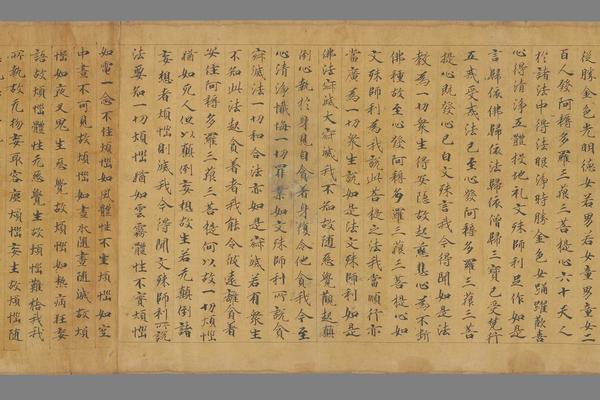 從勝金色光明德女若男若女童男童女二
百人發阿耨多羅三藐三菩提心六十天人
於諸法中得法眼淨時勝金色女踊躍歡喜
心得清淨五體投地礼文殊師利足作如是
言歸依佛歸依法歸依僧歸三寶已受梵行
五戒受戒法已至心發阿耨多羅三藐三菩
提心既發心已白文殊言我今得聞如是法
教為一切衆生得安隱故起慈悲心為不斷
佛種故至心發阿耨多羅三藐三菩提心如
文殊師利為我說此菩提之法我當順行亦
當廣為一切衆生說如是法文殊師利如是
佛法寂滅大寂滅我不知故隨惡覺顛起顛
倒心執於身見自貪著身復令他貪我今至
心清淨懺悔一切罪業如文殊師利所說貪
寂滅法一切和合法亦如是寂滅若有衆生
不知此法起貪著者我能令彼遠離貪著
安住阿耨多羅三藐三菩提何以故一切煩惱
猶如死人但以顛倒妄想故生若无顛倒諸
妄想者煩惱則滅我今得聞文殊師利所說
法要知一切煩惱猶如雲霧體性不實煩惱
如電一念不住煩惱如風體性不生煩惱如空
中畫不可見故煩惱如畫水隨畫隨滅故煩
惱如夜叉鬼生惡覺故煩惱如熱病狂妄
語故煩惱體性无惡覺生故煩惱難捨我我
所執故无物妄取客塵煩惱妄生故煩惱隨